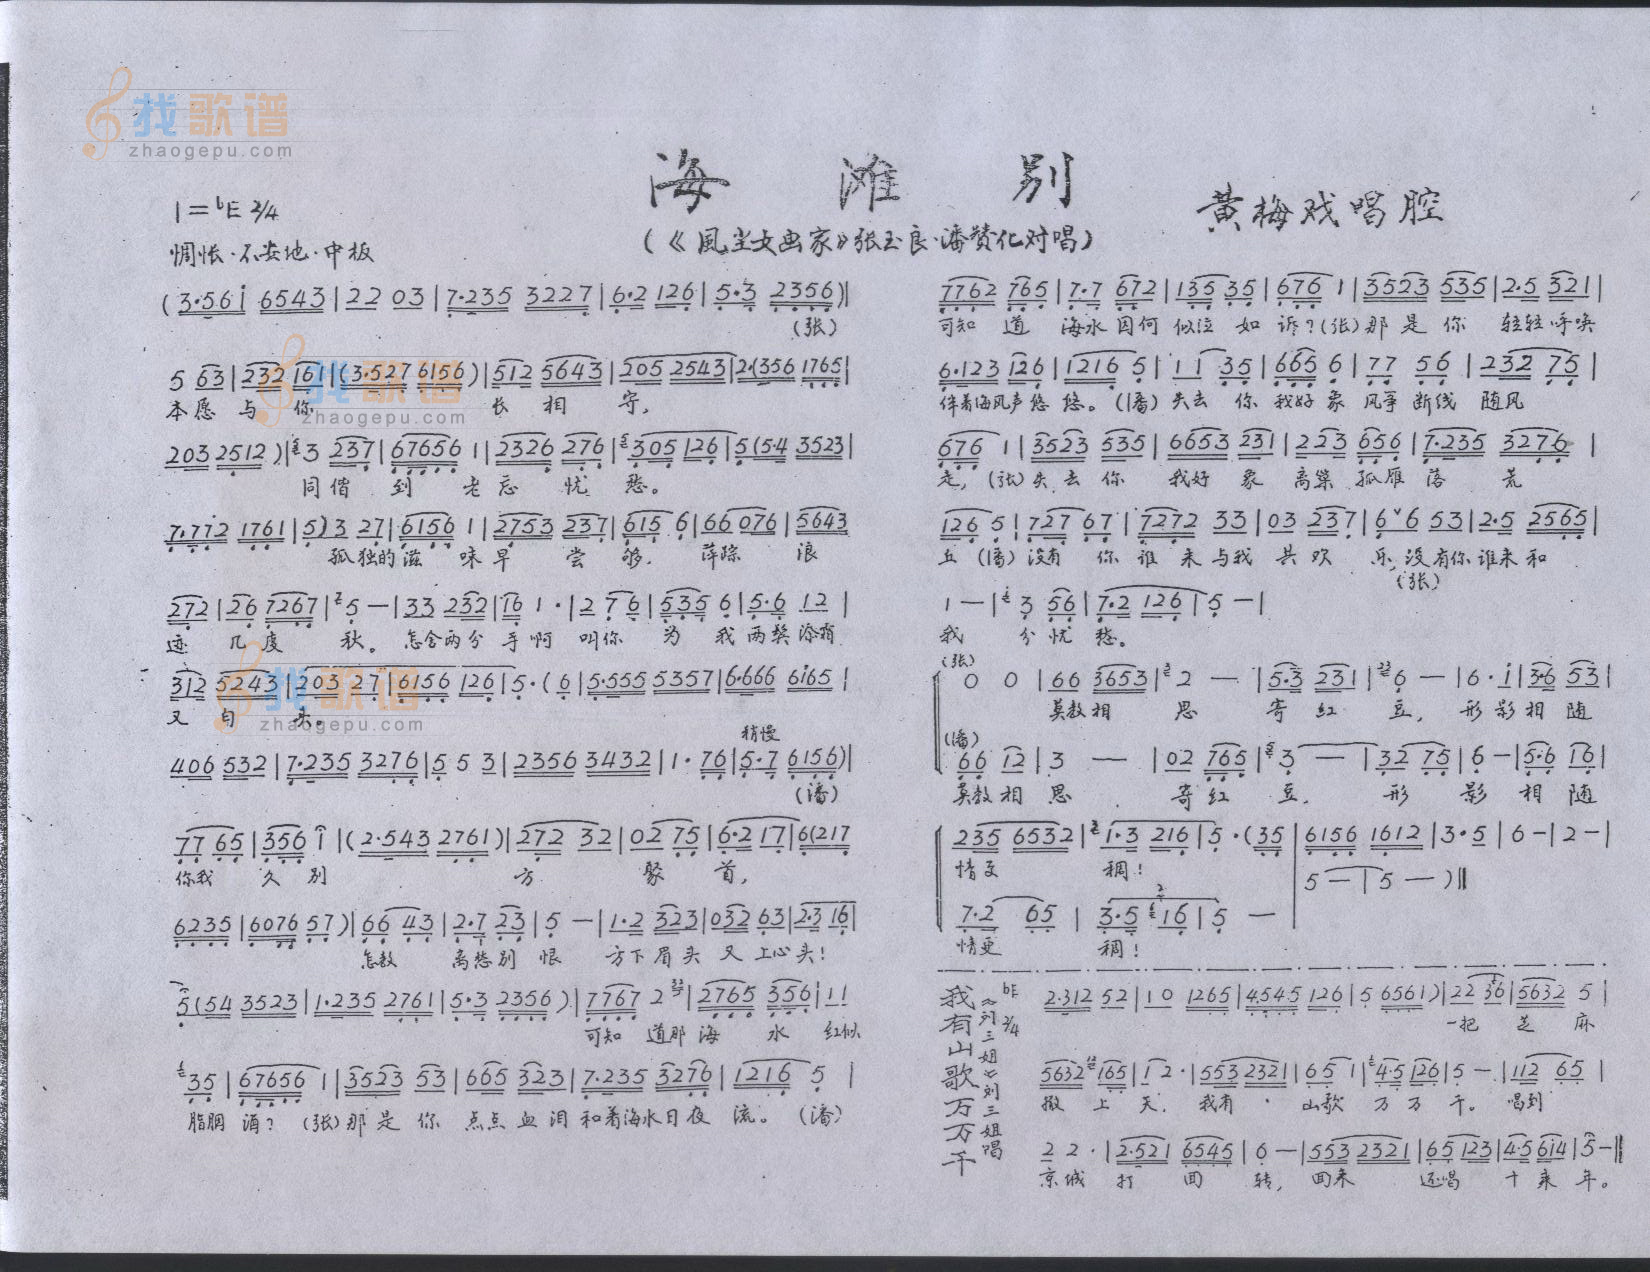 找歌谱
zhaogepu.com
海滩别
黄梅戏唱腔
(《風尘女画家》张玉良·潘赞化对唱)
1=bE 2/4
惆怅·不安地·中板
(3·561 6543|22 03|7·235 3227|6·2 126|5·3 2356)|
(张)
5 63|232 161|(3·527 6156)|512 5643|205 2543|2·(356 1765|
本愿与你 长相守,
203 2512)|3 237|67656 1|2326 276|305 126|5(5·4 3523|
同偕到老忘忧愁。
7·772 1761|5)3 27|6156 1|2753 237|615 6|66 076|5643
孤独的滋味早尝够. 萍踪浪
272|26 7267|5 —|33 232|16 1·|2 76|535 6|5·6 12|
迹几度秋。怎舍两分手啊叫你为我两鬓添霜
312 5243|203 27|6156 126|5·(6|5·555 5357|6·666 6165|
又白头。
稍慢
406 532|7·235 3276|5 5 3|2356 3432|1·76|5·7 6156)|
(潘)
77 65|356 1|(2·543 2761)|272 32|02 75|6·2 17|6(217
你我久别 方聚首,
6235|6076 57)|66 43|2·7 23|5 —|1·2 323|032 63|2·3 16|
怎教离愁别恨方下眉头又上心头!
5(54 3523|1·235 2761|5·3 2356)|7767 2|2765 356|11
可知道那海水红似
35|67656 1|3523 53|665 323|7·235 3276|1216 5|
胭脂酒?(张)那是你点点血泪和着海水日夜流。(潘)
7762 765|7·7 672|135 35|676 1|3523 535|2·5 321|
可知道海水因何似泣如诉?(张)那是你轻轻呼唤
6·123 126|1216 5|11 35|665 6|77 56|232 75|
伴着海风声悠悠。(潘)失去你我好象风筝断线随风
676 1|3523 535|6653 231|223 656|7·235 3276|
走,(张)失去你我好象离巢孤雁落荒
126 5|727 67|7272 33|03 237|6ˇ6 53|2·5 2565|
丘(潘)没有你谁来与我共欢乐,没有你谁来和
(张)
1 —|3 56|7·2 126|5 —|
我分忧愁。
(张)
0 0|66 3653|2 —|5·3 231|6 —|6·1|3·6 53|
莫教相思寄红豆,形影相随
(潘)
66 12|3 —|02 765|3 —|32 75|6 —|5·6 16|
莫教相思寄红豆,形影相随
235 6532|1·3 216|5·(35|6156 1612|3·5|6 —|2 —|
情更稠!
5 —|5 —)‖
7·2 65|3·5 16|5 —
情更稠!
我有山歌万万千
《刘三姐》刘三姐唱
bE 2/4
2·312 52|10 1265|4545 126|5 6561)|22 36|5632 5|
一把芝麻
5632 165|1 2·|553 2321|65 1|4·5 126|5 —|112 65|
撒上天,我有山歌万万千。唱到
2 2·|2·521 6545|6 —|553 2321|65 123|4·5 614|5 —‖
京城打回转,回来还唱十来年。